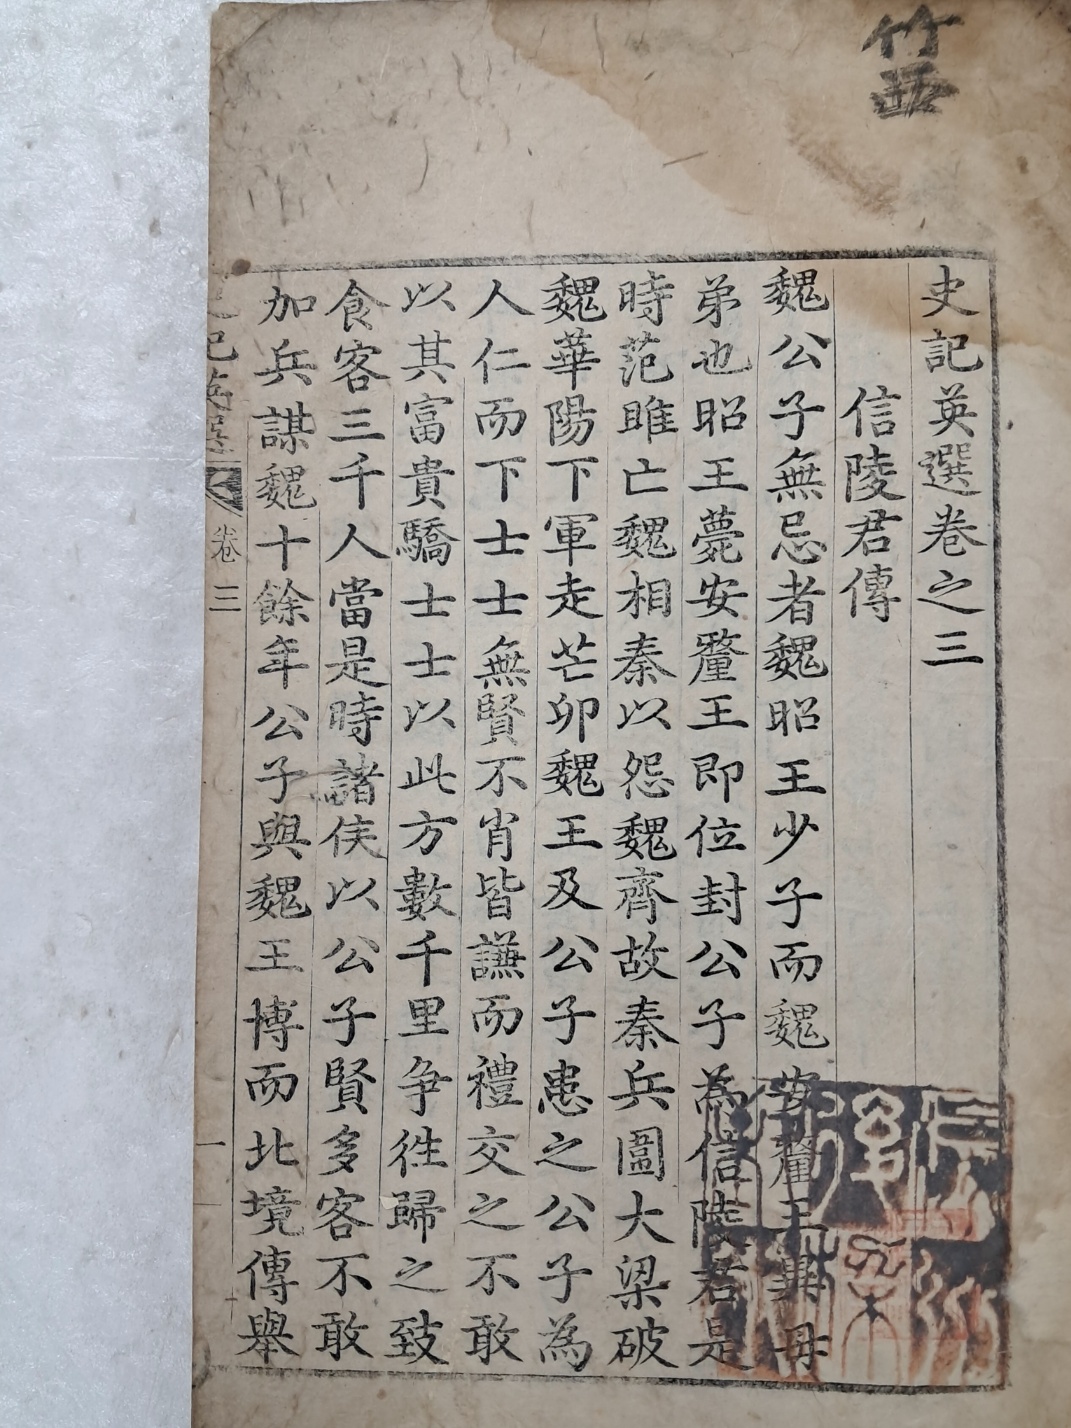 竹
史記英選卷之三
信陵君傳
魏公子無忌者魏昭王少子而魏安釐王異母
弟也昭王薨安釐王即位封公子為信陵君是
時范雎亡魏相秦以怨魏齊故秦兵圍大梁破
魏華陽下軍走芒卯魏王及公子患之公子為
人仁而下士士無賢不肖皆謙而禮交之不敢
以其富貴驕士士以此方數千里争徃歸之致
食客三千人當是時諸侯以公子賢多客不敢
加兵謀魏十餘年公子與魏王博而北境傳舉
史記英選 卷三 一